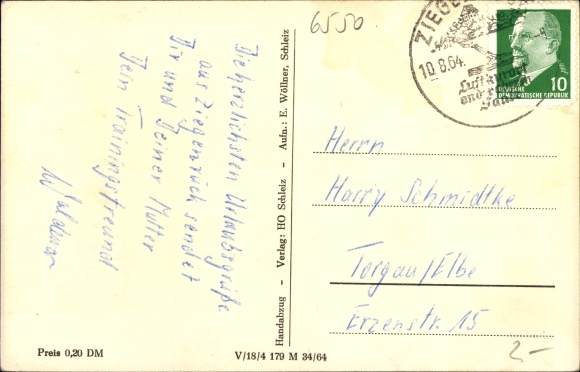 6550
Die herzlichsten Urlaubsgrüße
aus Ziegenrück sendet
Dir und Deiner Mutter
Dein Trainingsfreund
Waldemar
Preis 0,20 DM
Handabzug – Verlag: HO Schleiz – Aufn.: E. Wöllner, Schleiz
V/18/4 179 M 34/64
ZIEGE
10.8.64
Luftkurort
DEUTSCHE
DEMOKRATISCHE REPUBLIK
10
Herrn
Harry Schmidtke
Torgau/Elbe
Erzenstr. 15
2.-